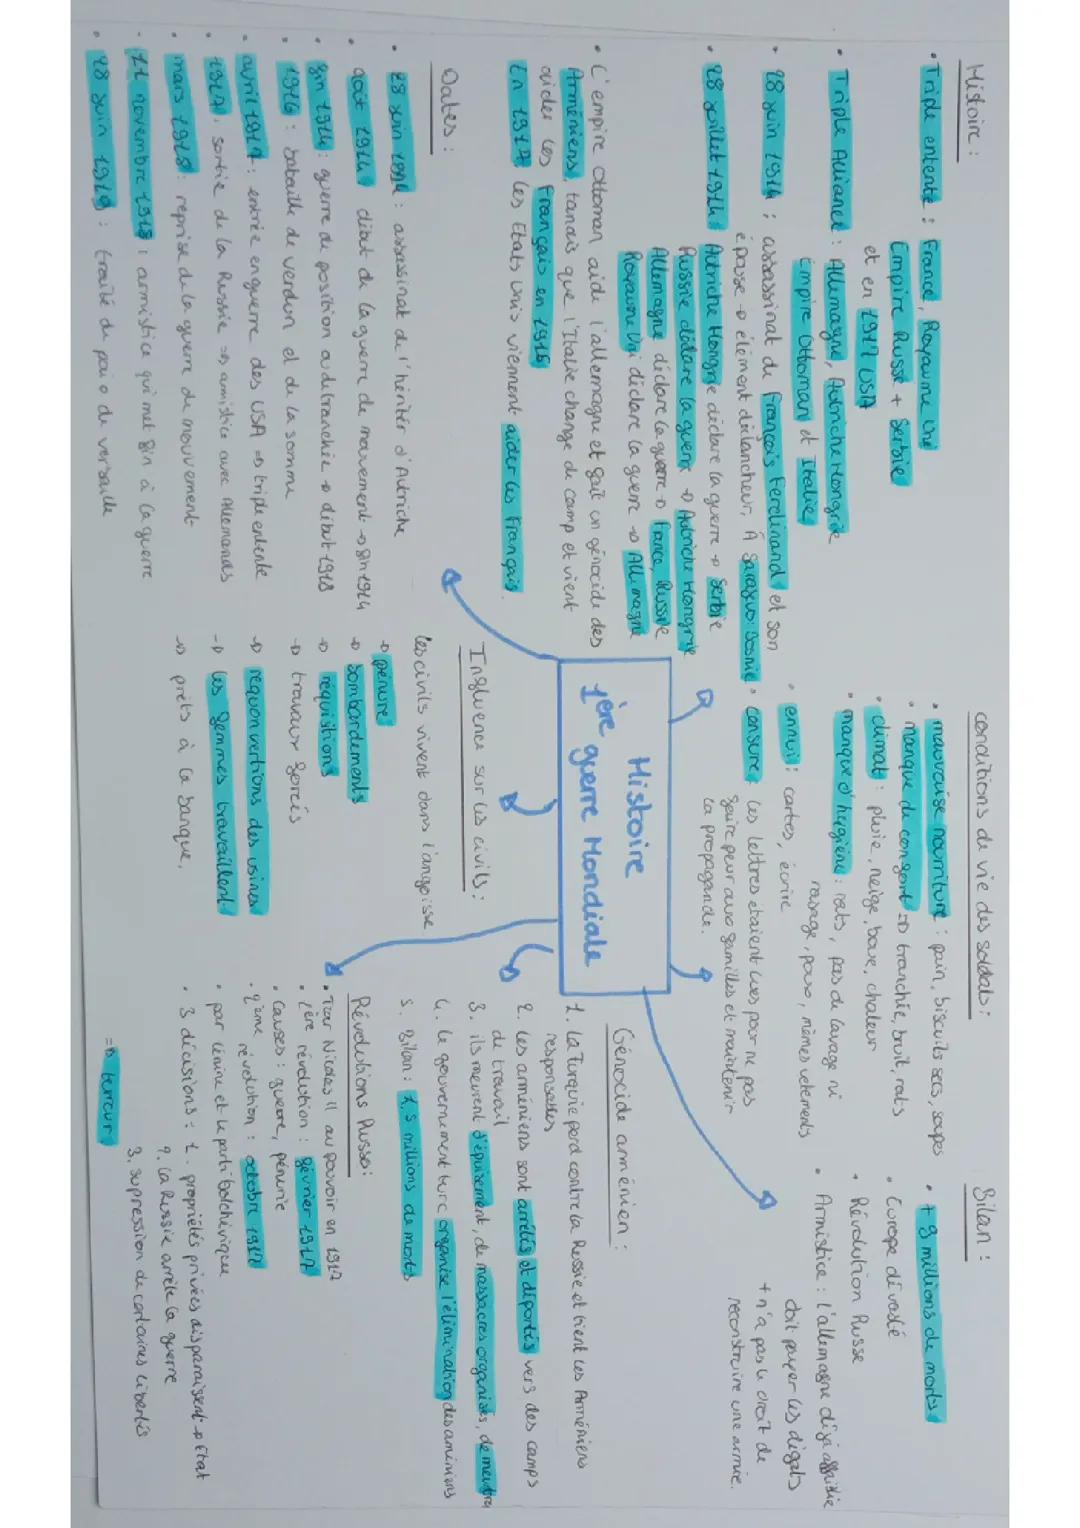 Histoire :
• Triple entente : France, Royaume Uni
Empire Russe + Serbie
et en 1917 USA
• Triple Alliance : Allemagne, Autriche Hongrie
Empire Ottoman et Italie
• 28 juin 1914 : assassinat de François Ferdinand et son
épouse → élément déclancheur, À Sarajevo : Bosnie
• 28 juillet 1914 : Autriche Hongrie déclare la guerre → Serbie
Russie déclare la guerre → Autriche Hongrie
Allemagne déclare la guerre → France, Russie
Royaume Uni déclare la guerre → Allemagne
• L'empire Ottoman aide l'allemagne et fait un génocide des
Arméniens, tandis que l'Italie change de camp et vient
aider les Français en 1915
En 1917 les Etats unis viennent aider les Français.
Dates :
• 28 juin 1914 : assassinat de l'héritier d'Autriche
• août 1914 : début de la guerre de mouvement → fin 1914
• fin 1914 : guerre de position ou de tranchée → début 1918
• 1916 : bataille de verdun et de la somme
• avril 1917 : entrée en guerre des USA ⇒ triple entente
• 1917 : sortie de la Russie ⇒ armistice avec Allemands
• mars 1918 : reprise de la guerre de mouvement
• 11 novembre 1918 : armistice qui met fin à la guerre
• 28 juin 1919 : traité de paix de versaille
Histoire
1ère guerre Mondiale
conditions de vie des soldats :
• mauvaise nourriture : pain, biscuits secs, soupes
• manque de confort ⇒ tranchée, bruit, rats
• climat : pluie, neige, boue, chaleur
• manque d'hygiène : rats, pas de lavage ni
rasage, poux, mêmes vetements
• ennui : cartes, écrire
• censure : les lettres étaient lues pour ne pas
faire peur aux familles et maintenir
la propagande.
Influence sur les civils :
les civils vivent dans l'angoisse
→ pénurie
→ bombardements
→ requisitions
→ travaux forcés
→ reconvertions des usines
→ les femmes travaillent
→ prêts à la banque.
Bilan :
• + 9 millions de morts
• Europe dévasté
• Révolution Russe
• Armistice : l'allemagne déjà affaiblie
doit payer les dégats
+ n'a pas le droit de
reconstruire une armée.
Génocide arménien :
1. La Turquie perd contre la Russie et tient les Arméniens
responsables
2. Les arméniens sont arrêtés et déportés vers des camps
de travail
3. ils meurent d'épuisement, de massacres organisés, de meurtre
4. le gouvernement turc organise l'élimination des arméniens
5. Bilan : 1,5 millions de morts
Révolutions Russe :
• Tsar Nicolas II au pouvoir en 1917
• 1ère révolution : février 1917
• Causes : guerre, pénurie
• 2ème révolution : octobre 1917
• par Lénine et le parti bolchévique
• 3 décisions : 1. propriétés privées disparaissent → Etat
2. La Russie arrête la guerre
3. supression de certaines libertés
⇒ terreur